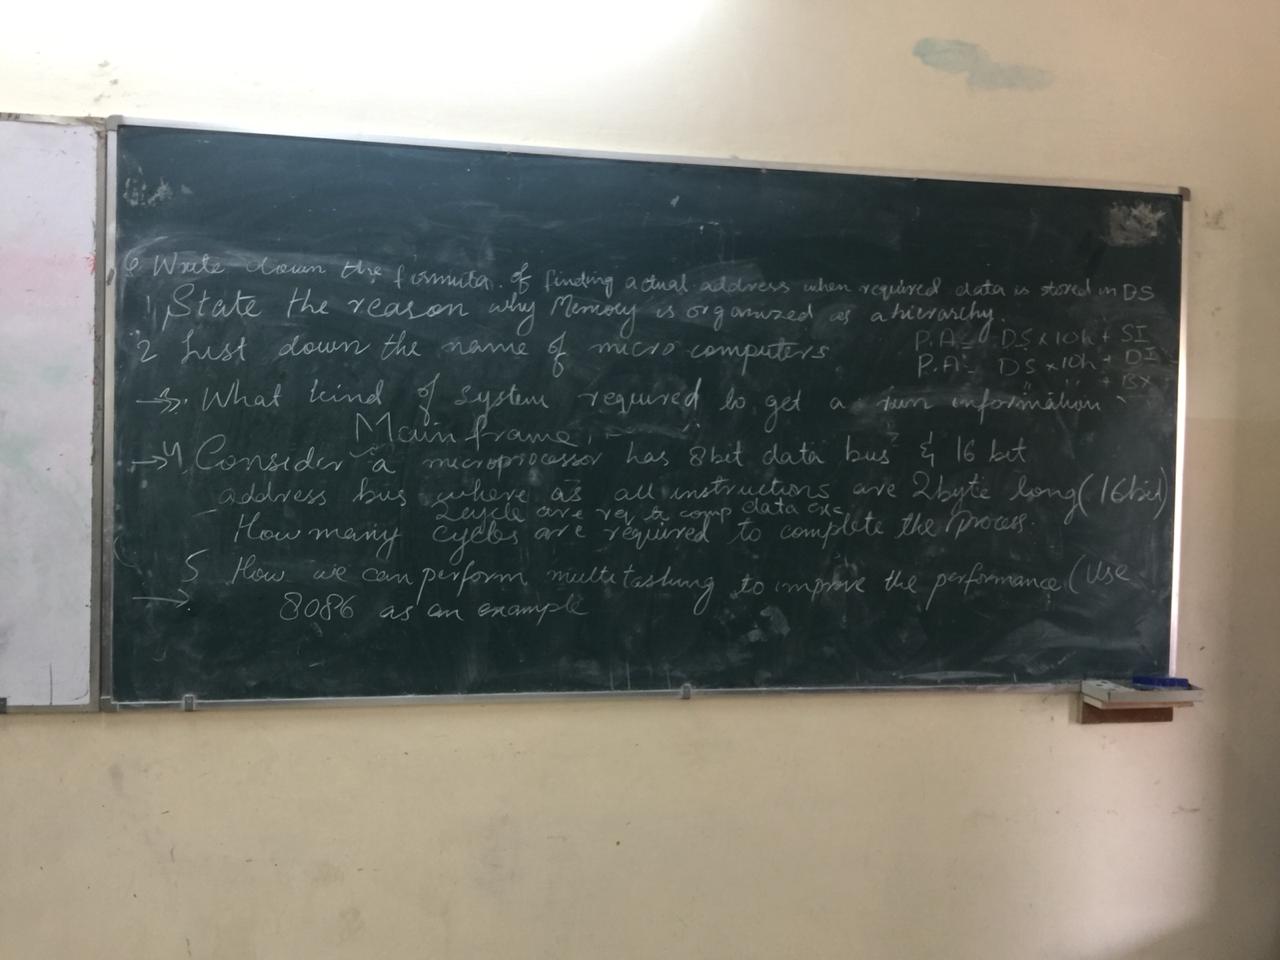 6 Write down the formula of finding actual address when required data is stored in DS
1, State the reason why Memory is organized as a hierarchy.
P.A = DS x 10h + SI
2 List down the name of micro computers
P.A = DS x 10h + DI
" " + BX
→ 3. What kind of system required to get a run information
Main frame.
→ 4 Consider a microprocessor has 8bit data bus & 16 bit
address bus where as all instructions are 2byte long (16bit)
2cycle are req to comp data exc
How many cycles are required to complete the process.
5 How we can perform multitasking to improve the performance (use
→ 8086 as an example